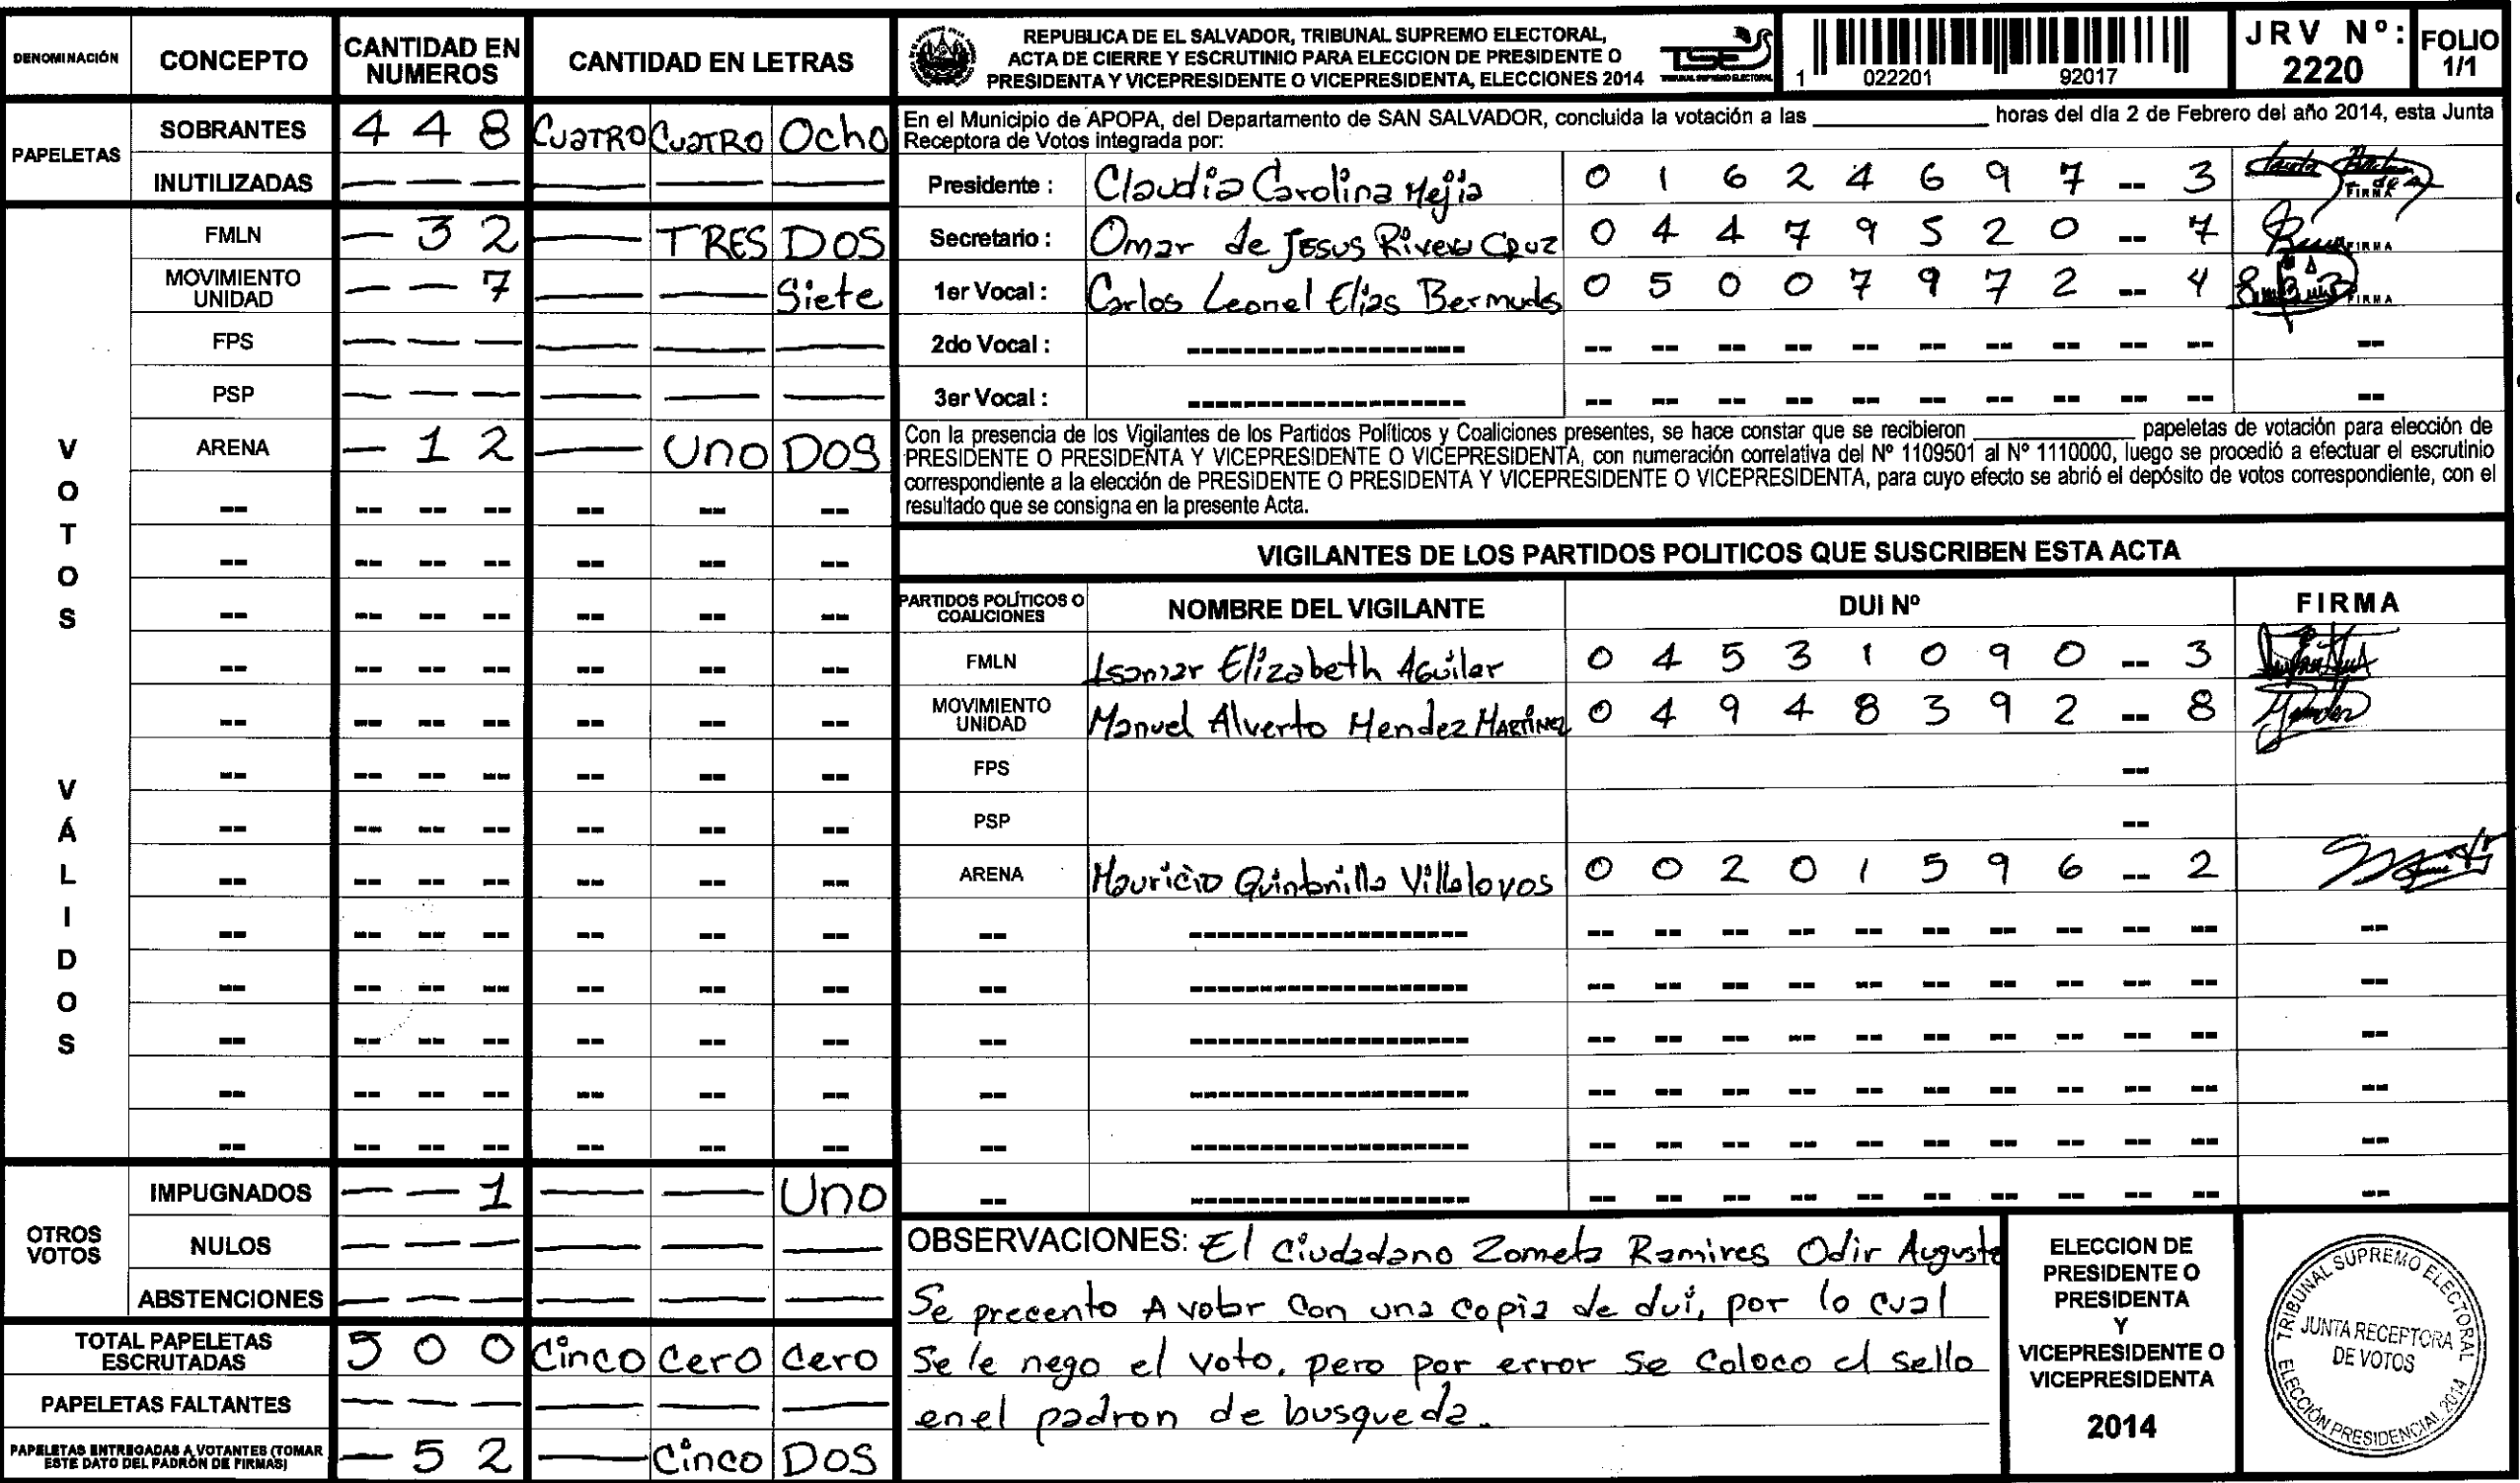 DENOMINACIÓN CONCEPTO CANTIDAD EN NUMEROS CANTIDAD EN LETRAS
PAPELETAS
SOBRANTES 4 4 8 CUATRO CUATRO Ocho
INUTILIZADAS — — — — — —
VOTOS VÁLIDOS
FMLN — 3 2 — TRES DOS
MOVIMIENTO UNIDAD — — 7 — — Siete
FPS — — — — — —
PSP — — — — — —
ARENA — 1 2 — UNO DOS
-- -- -- -- -- -- --
-- -- -- -- -- -- --
-- -- -- -- -- -- --
-- -- -- -- -- -- --
-- -- -- -- -- -- --
-- -- -- -- -- -- --
-- -- -- -- -- -- --
-- -- -- -- -- -- --
-- -- -- -- -- -- --
-- -- -- -- -- -- --
-- -- -- -- -- -- --
-- -- -- -- -- -- --
-- -- -- -- -- -- --
OTROS VOTOS
IMPUGNADOS — — 1 — — Uno
NULOS — — — — — —
ABSTENCIONES — — — — — —
TOTAL PAPELETAS ESCRUTADAS 5 0 0 Cinco Cero Cero
PAPELETAS FALTANTES — — — — — —
PAPELETAS ENTREGADAS A VOTANTES (TOMAR ESTE DATO DEL PADRÓN DE FIRMAS) — 5 2 — Cinco DOS
REPUBLICA DE EL SALVADOR, TRIBUNAL SUPREMO ELECTORAL,
ACTA DE CIERRE Y ESCRUTINIO PARA ELECCION DE PRESIDENTE O
PRESIDENTA Y VICEPRESIDENTE O VICEPRESIDENTA, ELECCIONES 2014
TSE
TRIBUNAL SUPREMO ELECTORAL
1 022201 92017
JRV Nº:
2220
FOLIO
1/1
En el Municipio de APOPA, del Departamento de SAN SALVADOR, concluida la votación a las ____ horas del día 2 de Febrero del año 2014, esta Junta
Receptora de Votos integrada por:
Presidente : Claudia Carolina Mejia 0 1 6 2 4 6 9 7 -- 3 FIRMA
Secretario : Omar de JESUS Rivera CRUZ 0 4 4 7 9 5 2 0 -- 7 FIRMA
1er Vocal : Carlos Leonel Elias Bermudes 0 5 0 0 7 9 7 2 -- 4 FIRMA
2do Vocal : -------------------- -- -- -- -- -- -- -- -- -- -- --
3er Vocal : -------------------- -- -- -- -- -- -- -- -- -- -- --
Con la presencia de los Vigilantes de los Partidos Políticos y Coaliciones presentes, se hace constar que se recibieron ____ papeletas de votación para elección de
PRESIDENTE O PRESIDENTA Y VICEPRESIDENTE O VICEPRESIDENTA, con numeración correlativa del Nº 1109501 al Nº 1110000, luego se procedió a efectuar el escrutinio
correspondiente a la elección de PRESIDENTE O PRESIDENTA Y VICEPRESIDENTE O VICEPRESIDENTA, para cuyo efecto se abrió el depósito de votos correspondiente, con el
resultado que se consigna en la presente Acta.
VIGILANTES DE LOS PARTIDOS POLITICOS QUE SUSCRIBEN ESTA ACTA
PARTIDOS POLÍTICOS O COALICIONES NOMBRE DEL VIGILANTE DUI Nº FIRMA
FMLN Isamar Elizabeth Aguilar 0 4 5 3 1 0 9 0 -- 3
MOVIMIENTO UNIDAD Manuel Alverto Mendez MARTINEZ 0 4 9 4 8 3 9 2 -- 8
FPS --
PSP --
ARENA Mauricio Quintanilla Villalovos 0 0 2 0 1 5 9 6 -- 2
-- -------------------- -- -- -- -- -- -- -- -- -- -- --
-- -------------------- -- -- -- -- -- -- -- -- -- -- --
-- -------------------- -- -- -- -- -- -- -- -- -- -- --
-- -------------------- -- -- -- -- -- -- -- -- -- -- --
-- -------------------- -- -- -- -- -- -- -- -- -- -- --
-- -------------------- -- -- -- -- -- -- -- -- -- -- --
OBSERVACIONES: El Ciudadano Zometa Ramires Odir Augusto
Se precento A votar Con una copia de dui, por lo cual
Se le nego el voto, pero por error se coloco el sello
en el padron de busqueda.
ELECCION DE
PRESIDENTE O
PRESIDENTA
Y
VICEPRESIDENTE O
VICEPRESIDENTA
2014
TRIBUNAL SUPREMO ELECTORAL
JUNTA RECEPTORA
DE VOTOS
ELECCIÓN PRESIDENCIAL 2014